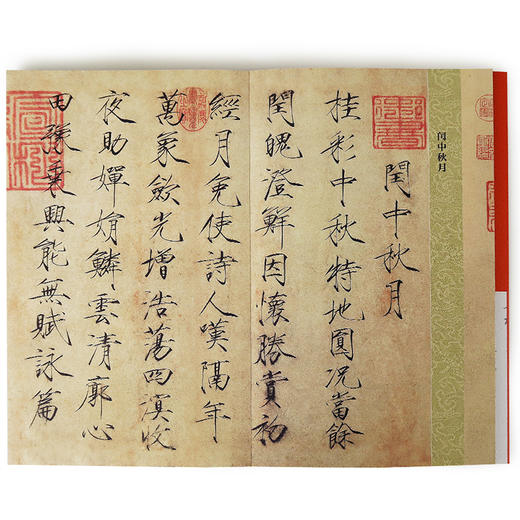 闰中秋月
閏中秋月
桂彩中秋特地圓况當餘
閏魄澄鮮因懷勝賞初
經月免使詩人嘆隔年
萬象斂光增浩蕩四溟收
夜助嬋娟鱗雲清廓心
田豫乘興能無賦詠篇